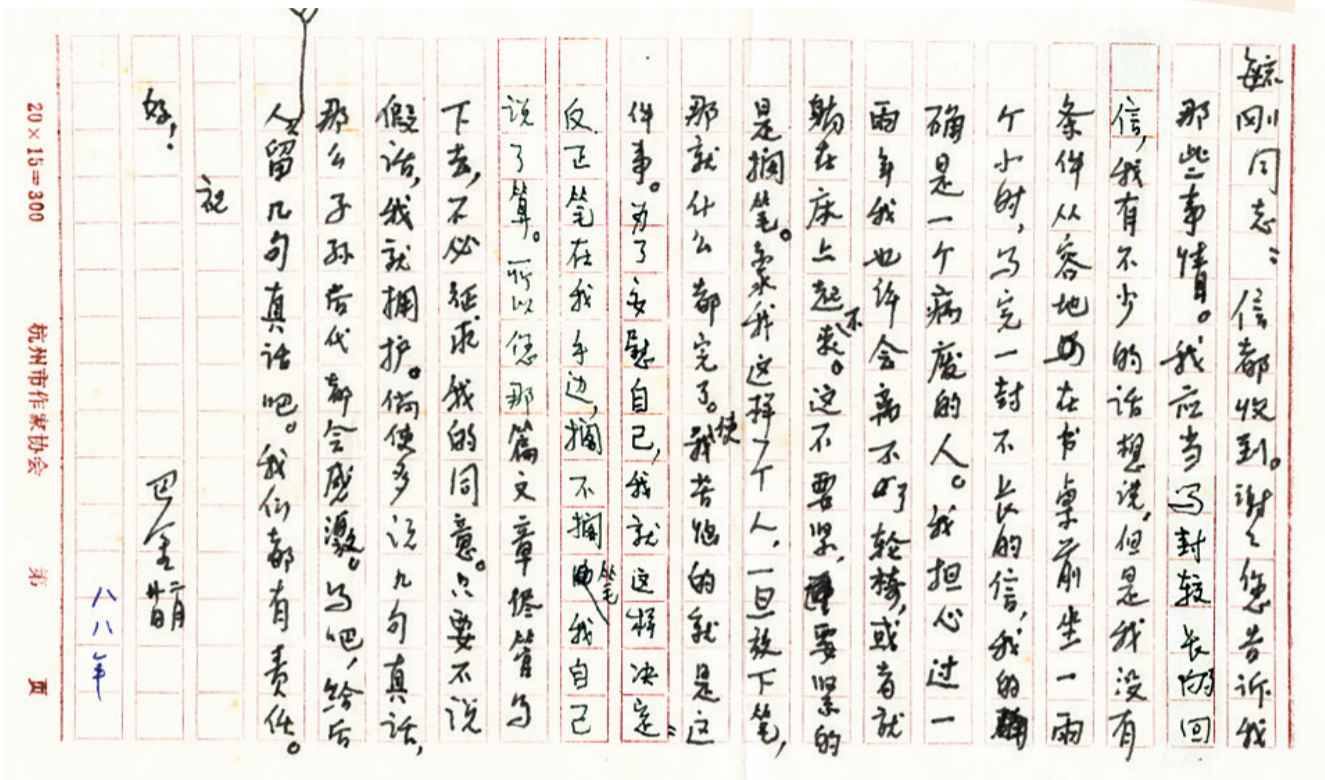 毓刚同志：信都收到。谢谢您告诉我
那些事情。我应当写封较长的回
信，我有不少的话想说，但是我没有
条件从容地在书桌前坐一两
个小时，写完一封不长的信，我的
确是一个病废的人。我担心过一
两年我也许会离不了轮椅，或者就
躺在床上起不来。这不要紧，要紧的
是搁笔。象我这样一个人，一旦放下笔，
那就什么都完了。使我苦恼的就是这
件事。为了安慰自己，我就这样决定：
反正笔在我手边，搁不搁笔我自己
说了算。所以您那篇文章尽管写
下去，不必征求我的同意。只要不说
假话，我就拥护。倘使多说几句真话，
那么子孙后代都会感激。写吧，给后
人留几句真话吧。我们都有责任。
祝
好！
巴金
二月廿日
八八年
20×15=300 杭州市作家协会 第 页